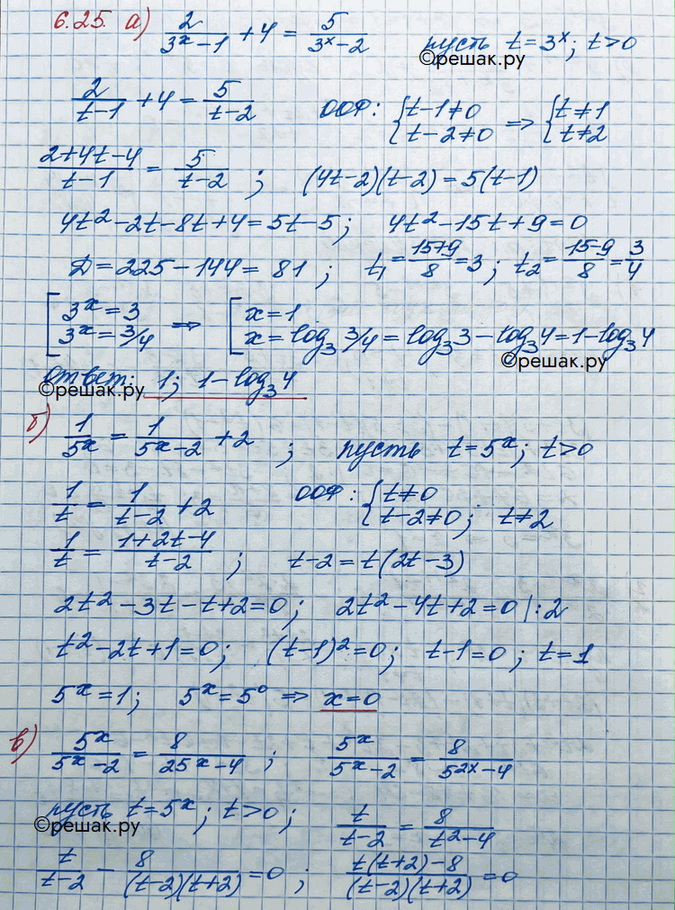 6.25. а) 2/(3^x-1) + 4 = 5/(3^x-2) пусть t=3^x; t>0
©решак.ру
2/(t-1) + 4 = 5/(t-2) ООФ: {t-1≠0 t-2≠0 ⇒ {t≠1 t≠2
(2+4t-4)/(t-1) = 5/(t-2); (4t-2)(t-2)=5(t-1)
4t²-2t-8t+4=5t-5; 4t²-15t+9=0
D=225-144=81; t₁=(15+9)/8=3; t₂=(15-9)/8=3/4
[3^x=3 3^x=3/4 ⇒ [x=1 x=log₃ 3/4=log₃3-log₃4=1-log₃4
©решак.ру
ответ: 1; 1-log₃4
©решак.ру
б) 1/5^x = 1/(5^x-2) + 2; пусть t=5^x; t>0
1/t = 1/(t-2) + 2 ООФ: {t≠0 t-2≠0; t≠2
1/t = (1+2t-4)/(t-2); t-2=t(2t-3)
2t²-3t-t+2=0; 2t²-4t+2=0 |:2
t²-2t+1=0; (t-1)²=0; t-1=0; t=1
5^x=1; 5^x=5⁰ ⇒ x=0
в) 5^x/(5^x-2) = 8/(25^x-4); 5^x/(5^x-2) = 8/(5^2x-4)
пусть t=5^x; t>0; t/(t-2) = 8/(t²-4)
©решак.ру
t/(t-2) - 8/((t-2)(t+2)) =0; (t(t+2)-8)/((t-2)(t+2)) =0